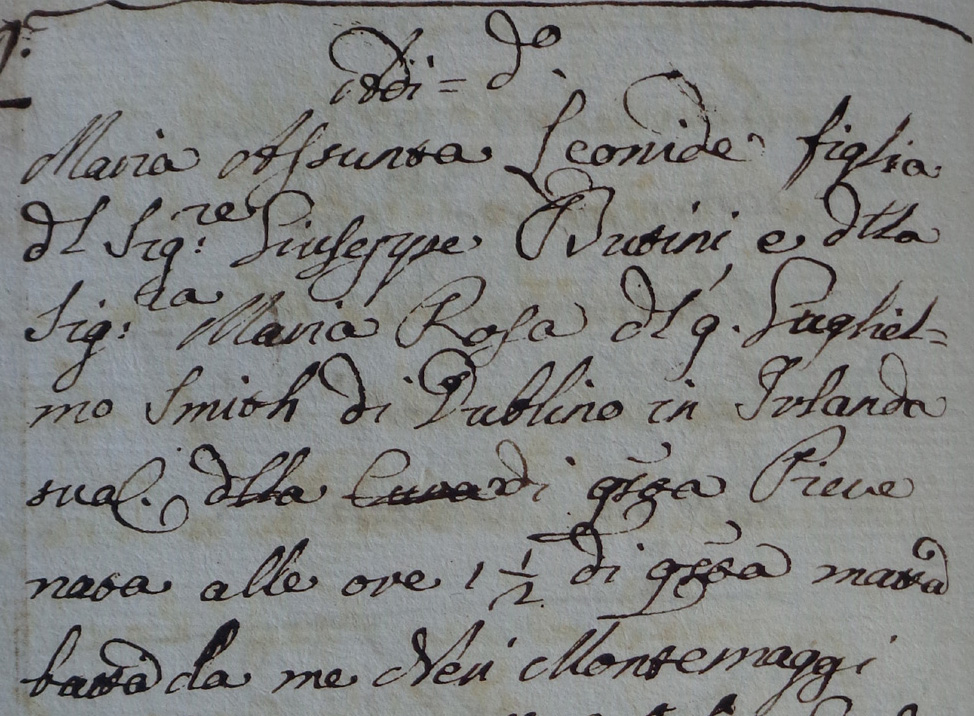 Adi = do.
Maria Assunta Leonide figlia
dl Sig:re Giuseppe Butini e dlla
Sig:ra Maria Rosa dl q. Gugliel=
mo Smith di Dublino in Irlanda
sua C. dlla Cura di qsta Pieve
nata alle ore 1 1/2 di qsta matta
batta da me Neri Montemaggi